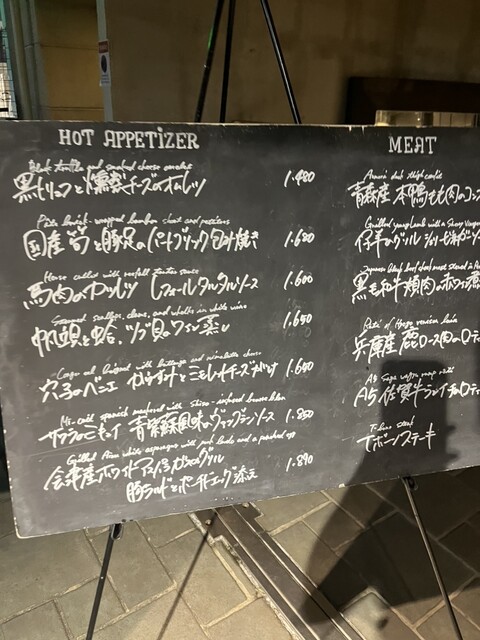 HOT APPETIZER
Black truffle and smoked cheese omelet
黒トリュフと燻製チーズのオムレツ 1.480
Pate brick-wrapped bamboo shoot and
国産筍と豚足のパートブリック包み焼き 1.680
Horse cutlet with
馬肉のカツレツ タルタルソース 1.600
Steamed scallops, clams, and whelks in white wine
帆立貝と蛤、ツブ貝のワイン蒸し 1.650
with and mimolette cheese
穴子のベニエ カラスミとミモレットチーズ 1.600
Mi-cuit spanish mackerel with Shiso-infused
サワラのミキュイ 青紫蘇風味のヴァンブランソース 1.850
Grilled Aizu white asparagus with pork and a poached egg
会津産ホワイトアスパラガスのグリル 1.890
豚 とポーチドエッグ添え
MEAT
Aomori duck thigh confit
青森産 本鴨もも肉のコン
Grilled young lamb with a Sherry Vinegar
仔羊のグリル シェリービネガーソー
Japanese black beef cheek meat stewed in
黒毛和牛 頬肉の
Pate of Hyogo venison loin
兵庫産 鹿ロース肉のロ
A5 Saga wagyu rump
A5 佐賀牛ランイチのロティ
T-bone steak
Tボーンステーキ